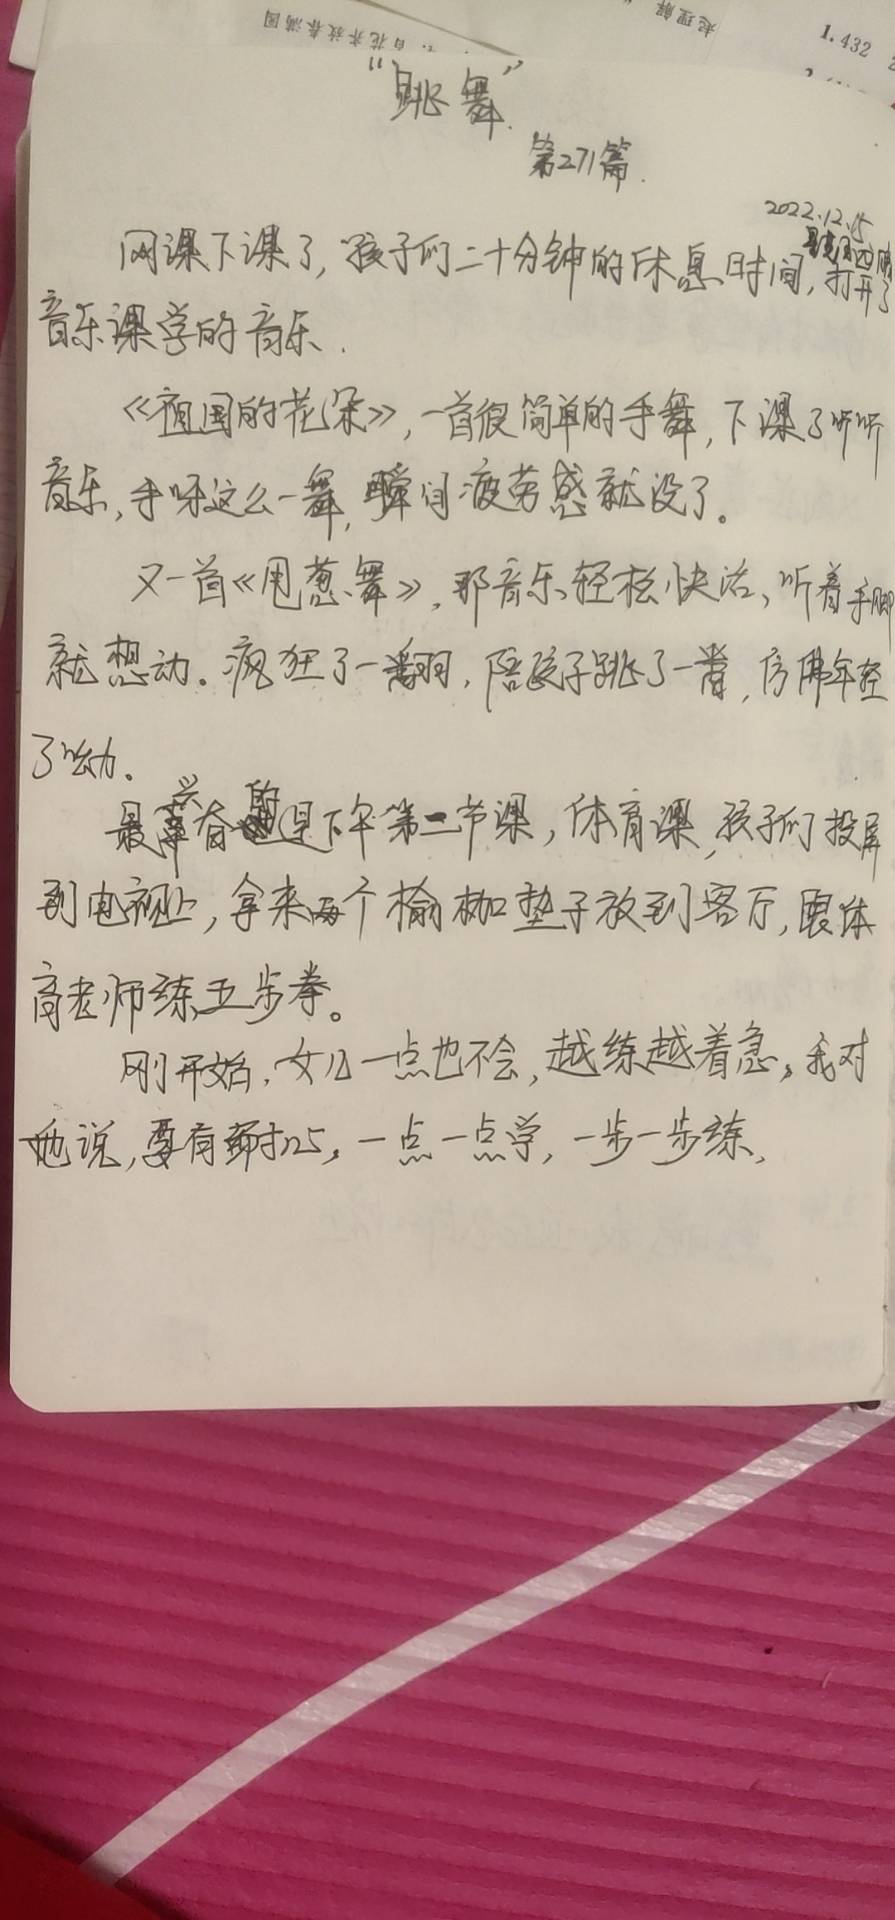 百花齐放春满园
起理解
1.432
“跳舞”
第271篇.
2022.12.15
星期四晴
网课下课了,孩子们二十分钟的休息时间,打开了
音乐课学的音乐.
《祖国的花朵》,一首很简单的手舞,下课了听听
音乐,手呀这么一舞,瞬间疲劳感就没了。
又一首《甩葱舞》,那音乐轻松快活、听着手脚
就想动。疯狂了一翻,陪孩子跳了一首,仿佛年轻
了呦。
最兴奋的是下午第二节课,体育课,孩子们投屏
到电视上,拿来两个榆枷垫子放到客厅,跟体
育老师练五步拳。
刚开始,女儿一点也不会,越练越着急,我对
她说,要有耐心,一点一点学,一步一步练,